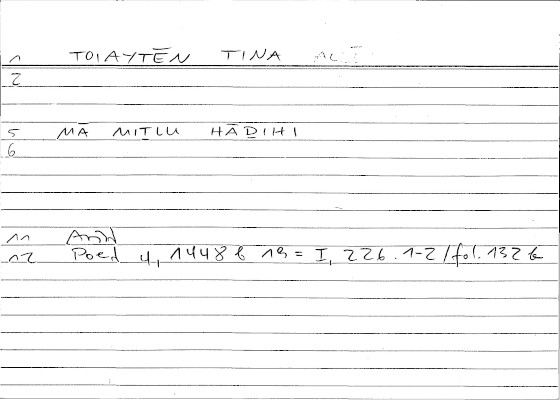 1 TOIAYTĒN TINA
2
5 MĀ MIṮLU HĀḎIHI
6
11
12 Poed 4, 1448 b 19 = I, 226.1-2/fol. 132 b